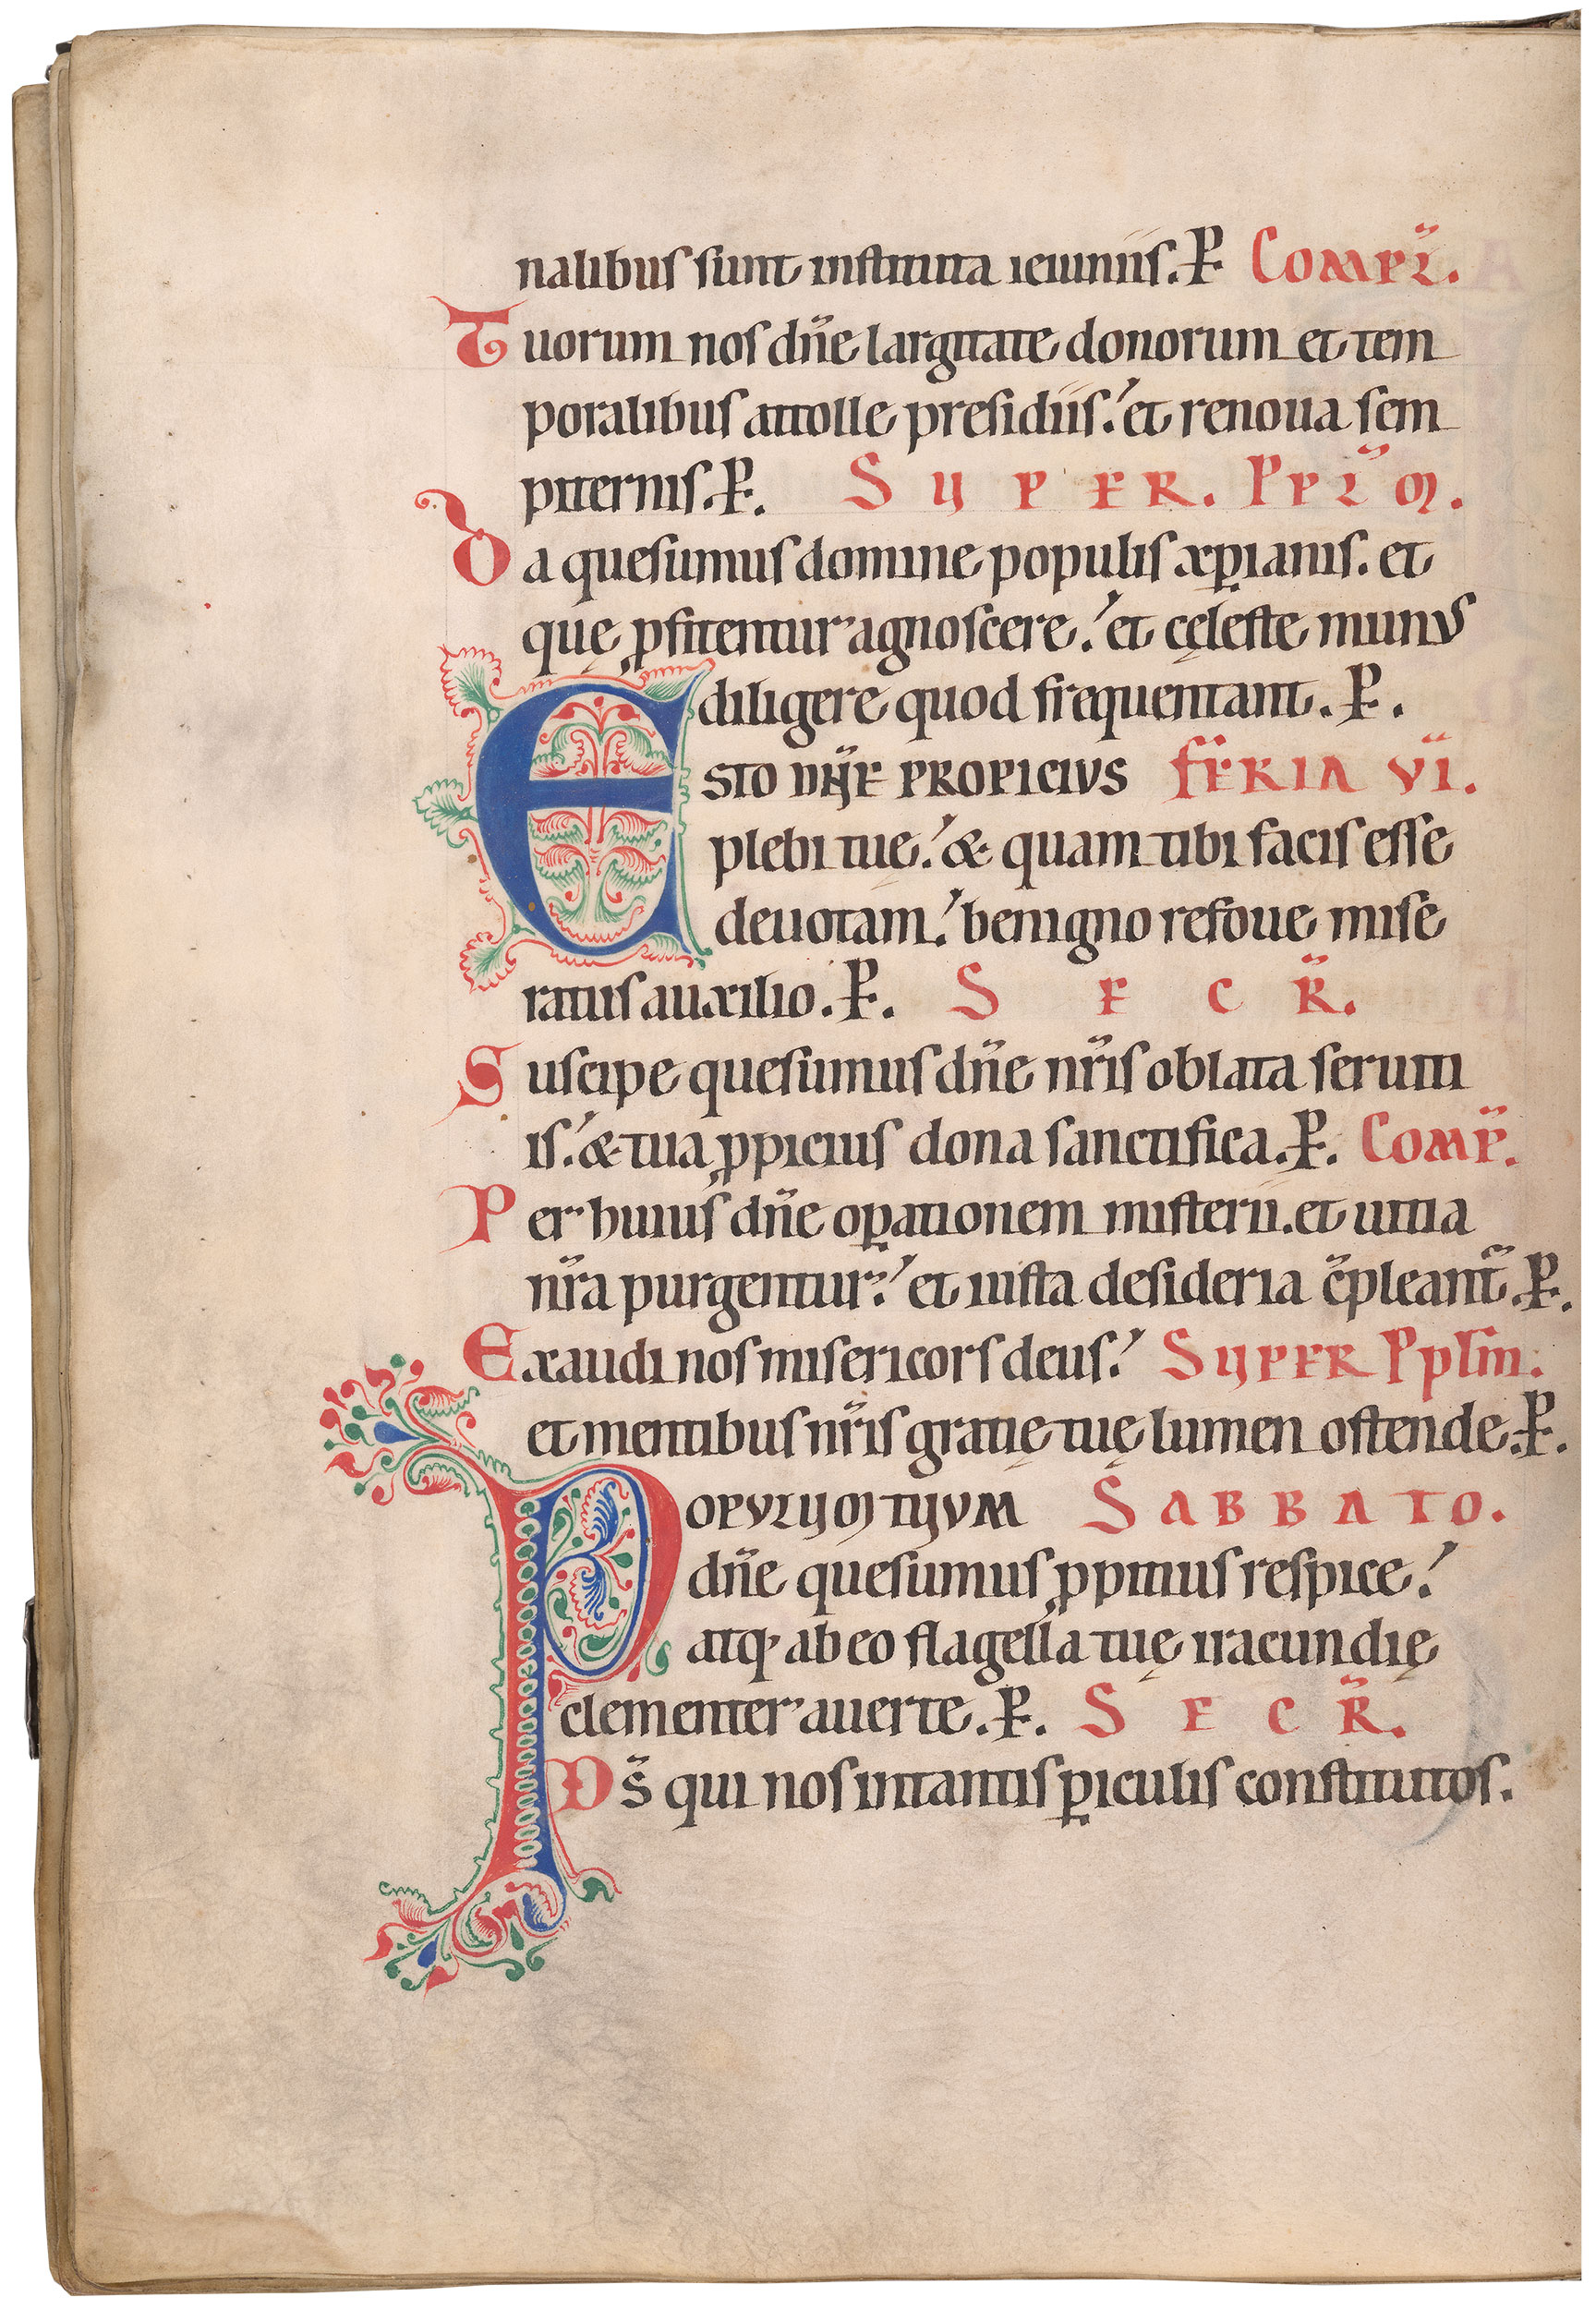 nalibus sunt instituta ieiuniis. P̱ Compl̃.
Tuorum nos dñe largitate donorum et tem
poralibus attolle presidiis. et renoua sem
piternis. P̱. SUPER. Ppl̃m.
Da quesumus domine populis xp̱ianis. et
quę ꝓfitentur agnoscere. et cęleste munus
diligere quod frequentant. P̱.
ESTO DÑE PROPICIUS FERIA VI.
plebi tuę. & quam tibi facis esse
deuotam. benigno refoue mise
ratus auxilio. P̱. SECR̃.
Suscipe quesumus dñe nr̃is oblata seruiti
is. & tua ꝓpicius dona sanctifica. P̱. Comp̃.
Per huius dñe oꝑationem misterii. et uitia
nr̃a purgentur. et iusta desideria c̃pleant̃. P̱.
Exaudi nos misericors deus. SUPER Pplm̃.
et mentibus nr̃is gratię tuę lumen ostende. P̱.
POPULUM TUUM SABBATO.
dñe quesumus ꝓpitius respice.
atq; ab eo flagella tuę iracundię
clementer auerte. P̱. SECR̃.
Ds̃ qui nos in tantis ꝑiculis constitutos.